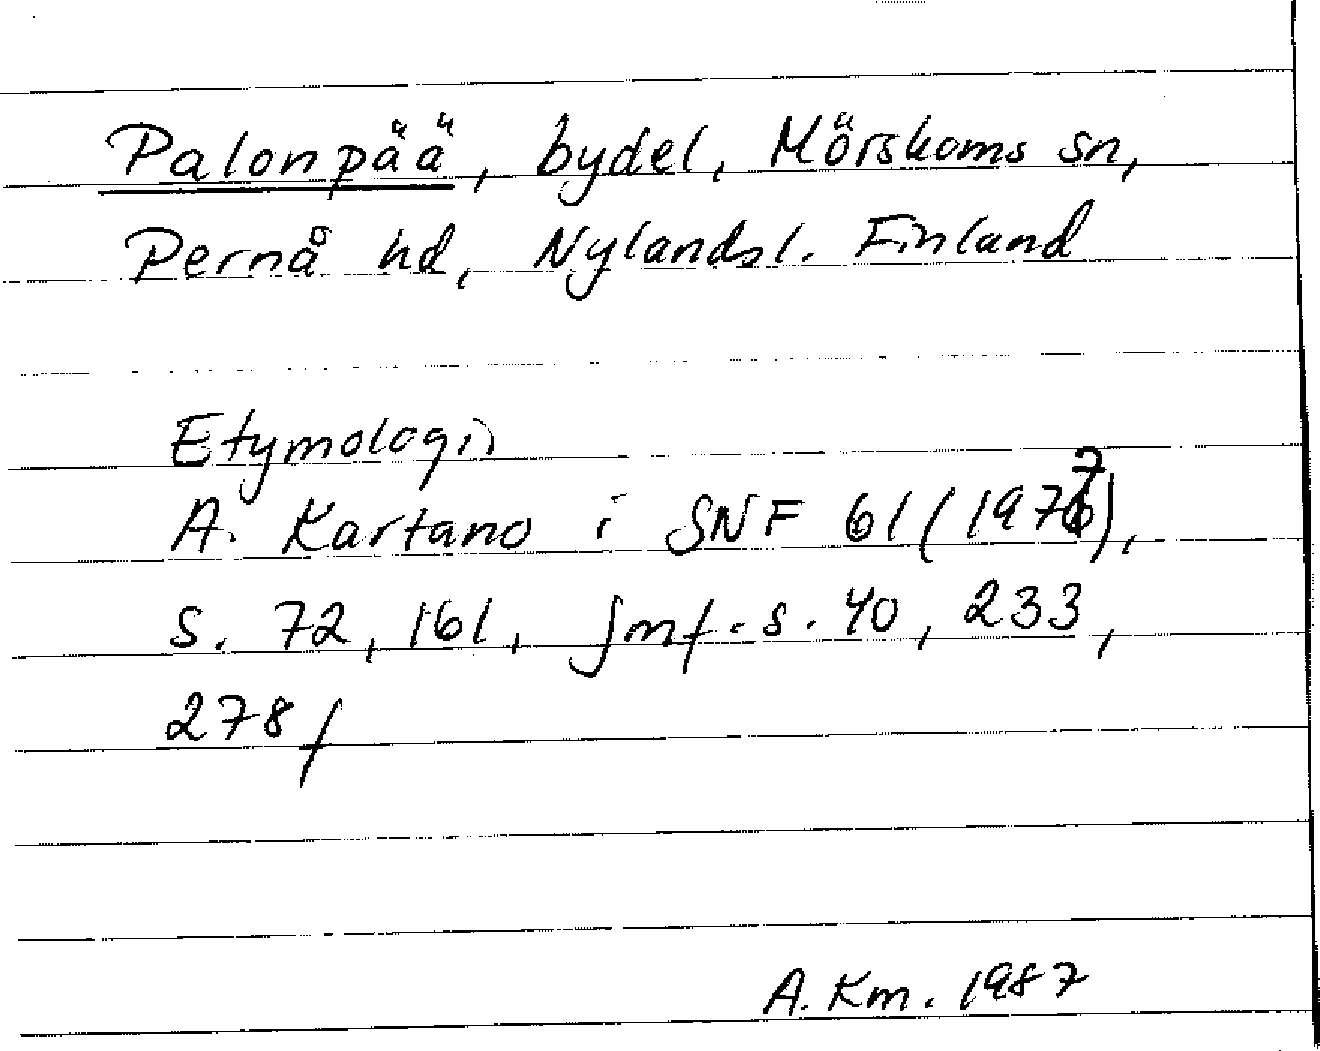 Palonpää, bydel, Mörskoms sn,
Pernå hd, Nylandsl. Finland
Etymologi
A. Kartano i SNF 61 (1977),
s. 72, 161, jmf. s. 40, 233,
278 f
A. Km. 1987